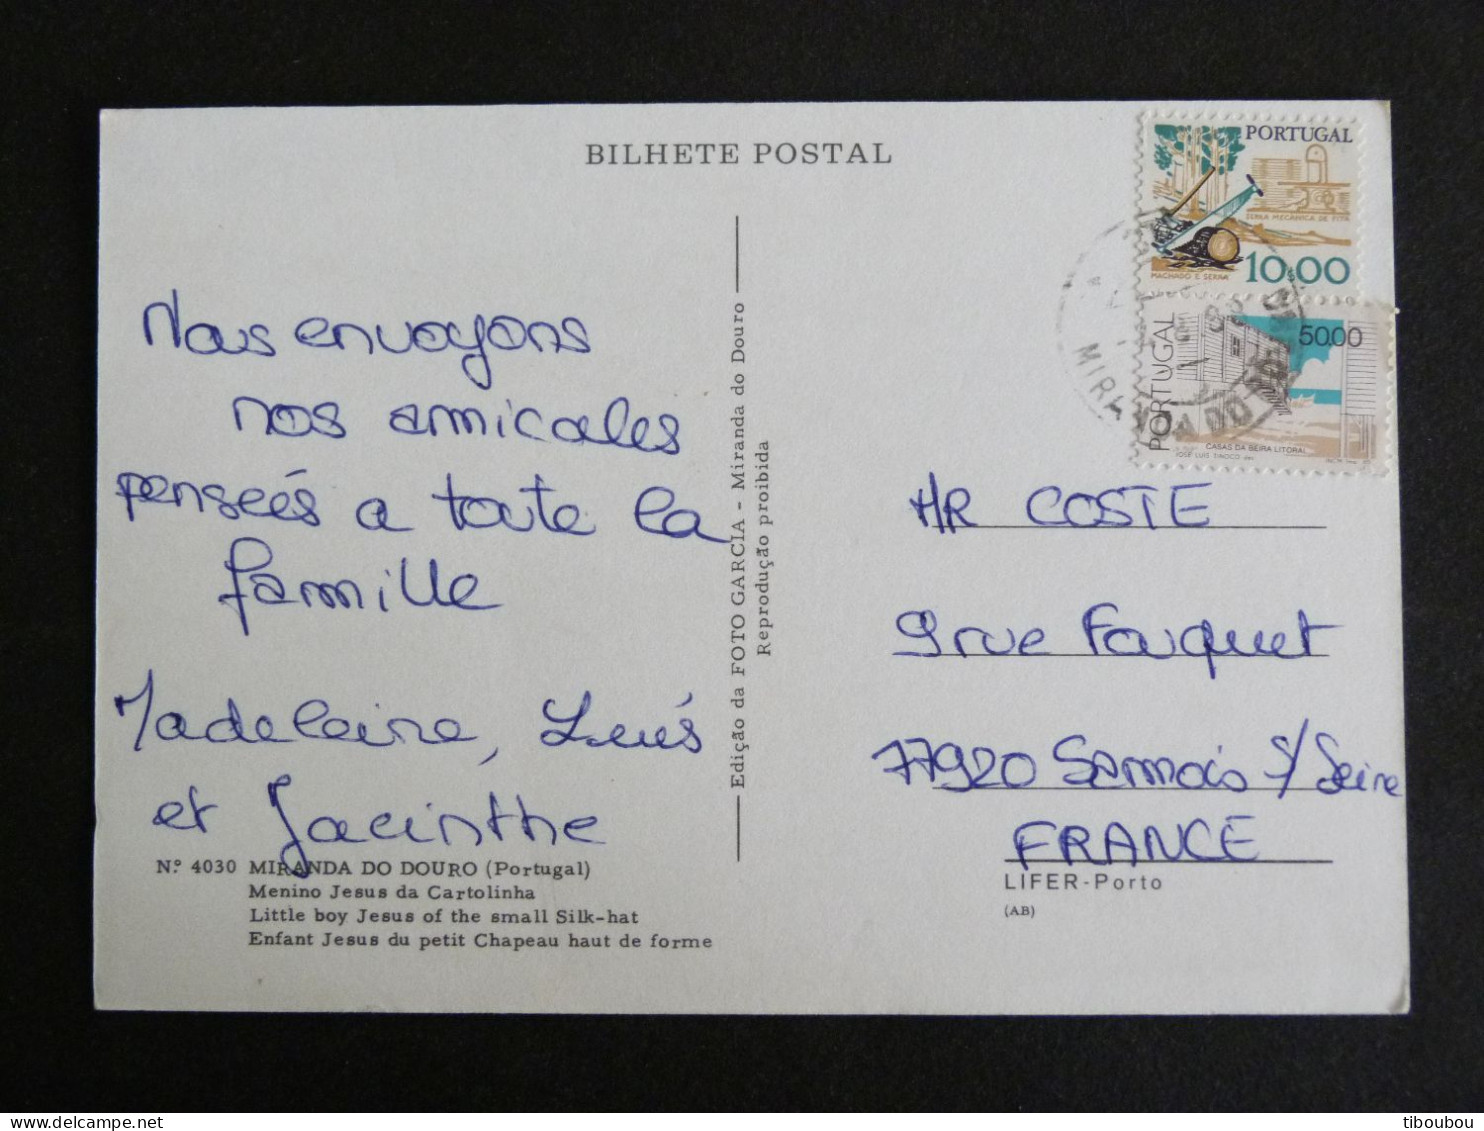 BILHETE POSTAL
PORTUGAL
SERRA MECANICA DE FITA
MACHADO E SERRA
10.00
PORTUGAL
50.00
CASAS DA BEIRA LITORAL
JOSÉ LUIS TINOCO
MIRANDA DO DOURO
Nous envoyons
nos amicales
penseés a toute la
famille
Madeleine, Luís
et Jacinthe
Edição da FOTO GARCIA - Miranda do Douro
Reprodução proibida
MR COSTE
9 rue Fouquet
77920 Samois S/Seine
FRANCE
LIFER-Porto
(AB)
N.º 4030 MIRANDA DO DOURO (Portugal)
Menino Jesus da Cartolinha
Little boy Jesus of the small Silk-hat
Enfant Jesus du petit Chapeau haut de forme
tiboubou